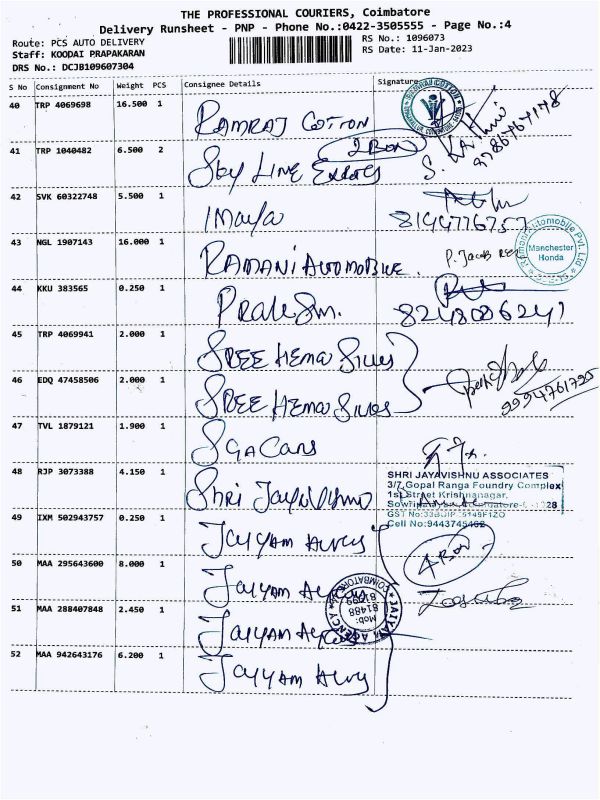 THE PROFESSIONAL COURIERS, Coimbatore
Delivery Runsheet - PNP - Phone No.:0422-3505555 - Page No.:4
Route: PCS AUTO DELIVERY
RS No.: 1096073
Staff: KOODAI PRAPAKARAN
RS Date: 11-Jan-2023
DRS No.: DCJB109607304
S No Consignment No Weight PCS Consignee Details Signature
40 TRP 4069698 16.500 1 RAMRAJ COTTON
41 TRP 1040482 6.500 2 Sky LINE 2 Box
42 SVK 60322748 5.500 1 Imaya 8144776757
43 NGL 1907143 16.000 1 RAMANI AUTOMOBILE.
Manchester
Honda
44 KKU 383565 0.250 1 8248086241
45 TRP 4069941 2.000 1 SREE HEMA
46 EDQ 47458506 2.000 1 SREE HEMA
9994761795
47 TVL 1879121 1.900 1 SGA Cars
48 RJP 3073388 4.150 1 Shri
SHRI JAYAVISHNU ASSOCIATES
3/7 Gopal Ranga Foundry Complex
1st Street Krishnanagar,
Cell No:9443745462
49 IXM 502943757 0.250 1 JAIYAM
4 Box
50 MAA 295643600 8.000 1 JAIYAM
JAIYAM AGENCY
COIMBATORE
Mob:
51 MAA 288407848 2.450 1 JAIYAM
52 MAA 942643176 6.200 1 JAIYAM